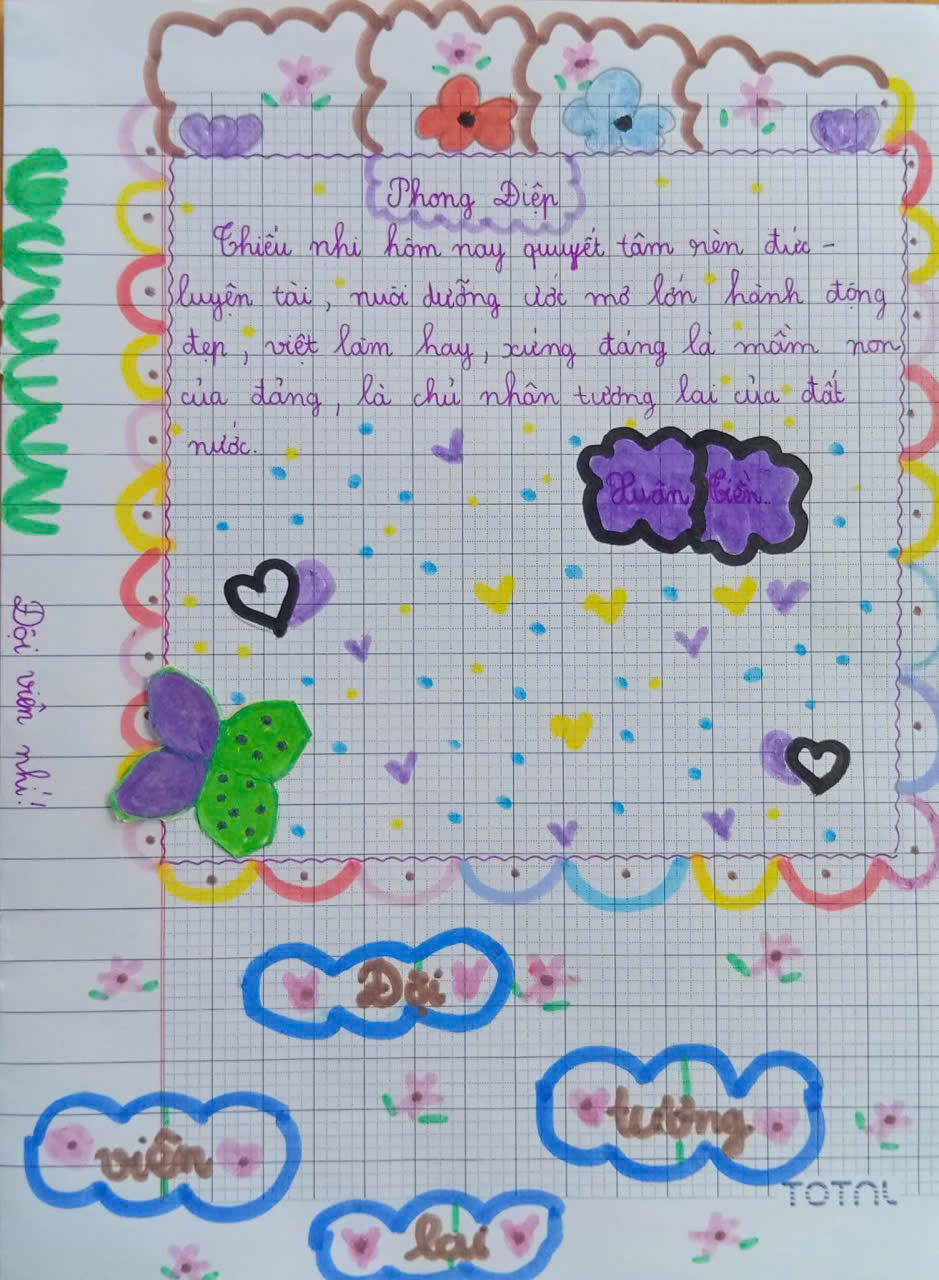 Phong Điệp
Thiếu nhi hôm nay quyết tâm rèn đức -
luyện tài, nuôi dưỡng ước mơ lớn hành động
đẹp, việt làm hay, xứng đáng là mầm non
của đảng, là chủ nhân tương lai của đất
nước.
Xuân Tiền..
Đội viên nhí!
Đội
viên
tương
lai
TOTAL